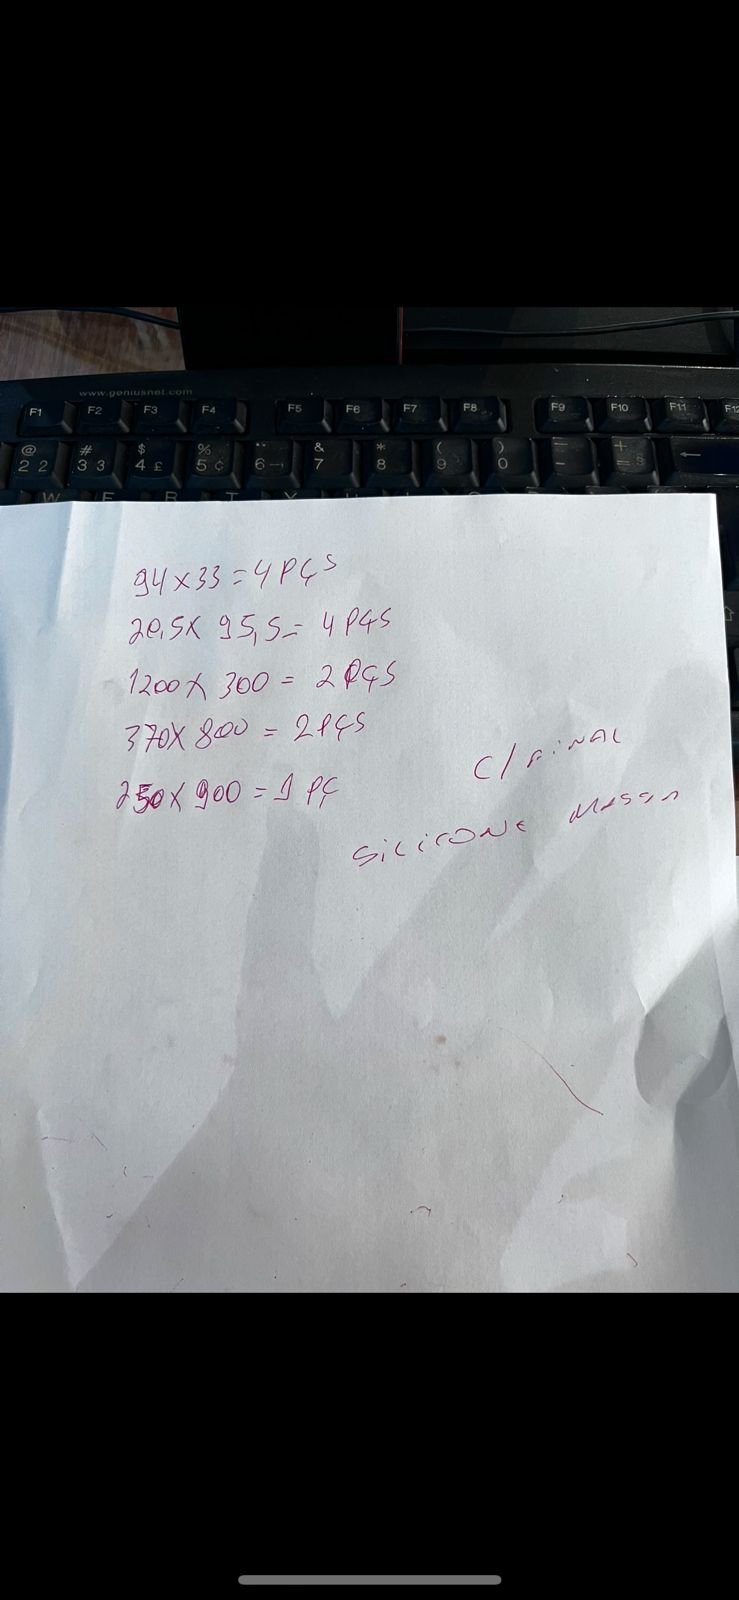 www.geniusnet.com
F1 F2 F3 F4 F5 F6 F7 F8 F9 F10 F11 F12
@ # $ % & * ( ) +
2 2 3 3 4 £ 5 ¢ 6 7 8 9 0 - = §
W E R T Y
94 x 33 = 4 PÇS
20,5 X 95,5 = 4 PÇS
1200 X 300 = 2 PÇS
370 X 800 = 2 PÇS
250 X 900 = 1 PÇ
C/ FINAL
SILICONE MASSA